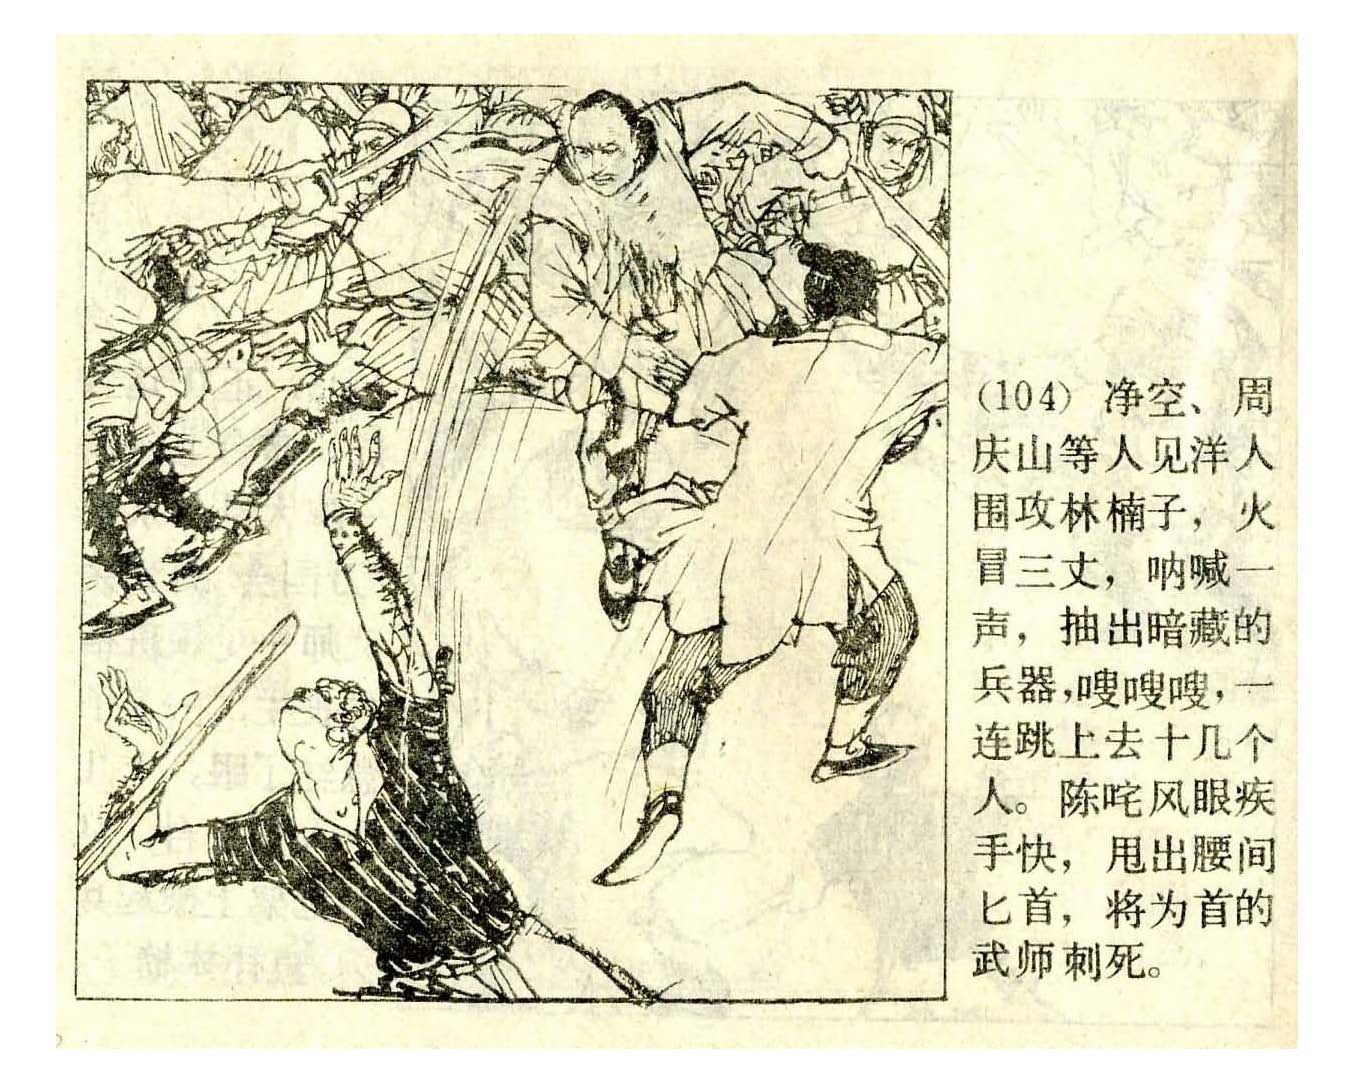 (104) 净空、周
庆山等人见洋人
围攻林楠子，火
冒三丈，呐喊一
声，抽出暗藏的
兵器，嗖嗖嗖，一
连跳上去十几个
人。陈咤风眼疾
手快，甩出腰间
匕首，将为首的
武师刺死。